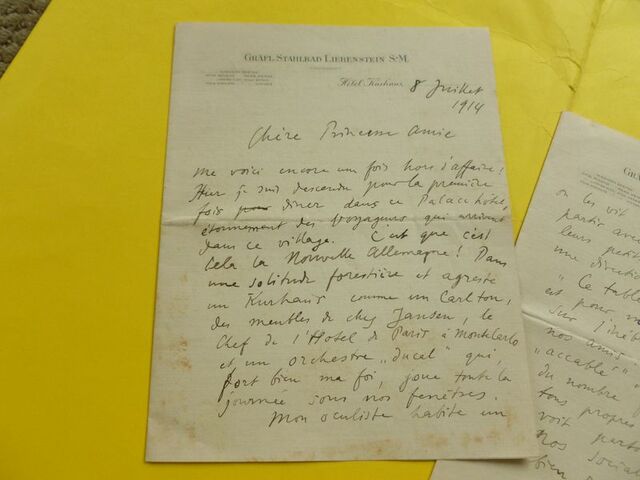 GRÄFL. STAHLBAD LIEBENSTEIN S.-M.
Hôtel Kurhaus, 8 Juillet
1914
Chère Princesse amie
me voici encore un fois hors d'affaire!
Hier je suis descendu pour la première
fois pour diner dans ce Palacehôtel,
étonnement des voyageurs qui arrivent
dans ce village. C'est que c'est
cela la Nouvelle Allemagne! Dans
une solitude forestière et agreste
un Kurhaus comme un Carlton,
des meubles de chez Jansen, le
Chef de l'Hotel de Paris à Monte Carlo
et un orchestre „ducal" qui,
fort bien ma foi, joue toute la
journée sous nos fenêtres.
Mon oculiste habite un
GRÄFL
on les vit
partir avec
leurs petit
une directi
"Ce table
est pour vo
sur l'inéb
nos amis.
„accable"
du nombre
tous propres
voit parto
nos social
bien d